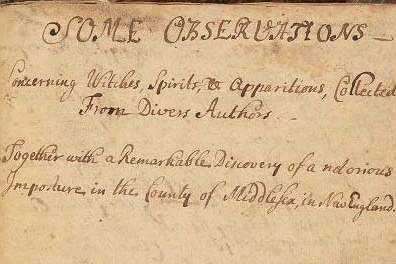 SOME OBSERVATIONS —
Concerning Witches, Spirits, & Apparitions, Collected
From Divers Authors. -
Together with a Remarkable Discovery of a notorious
Imposture, in the County of Middlesex, in New England.